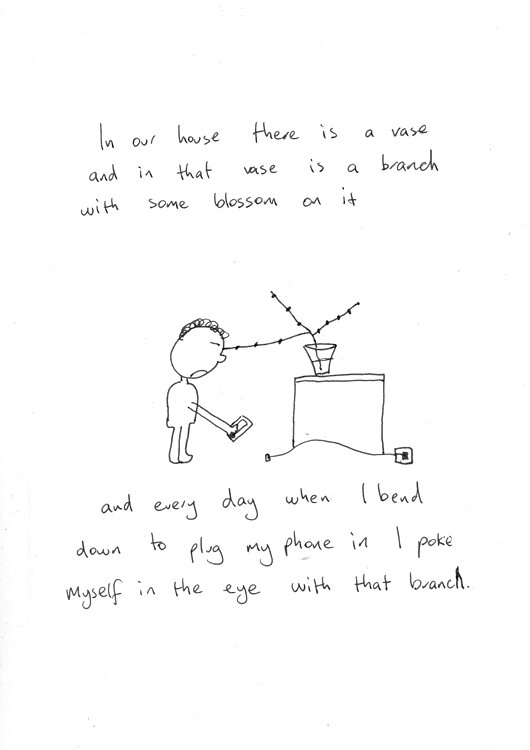 In our house there is a vase
and in that vase is a branch
with some blossom on it
and every day when I bend
down to plug my phone in I poke
myself in the eye with that branch.